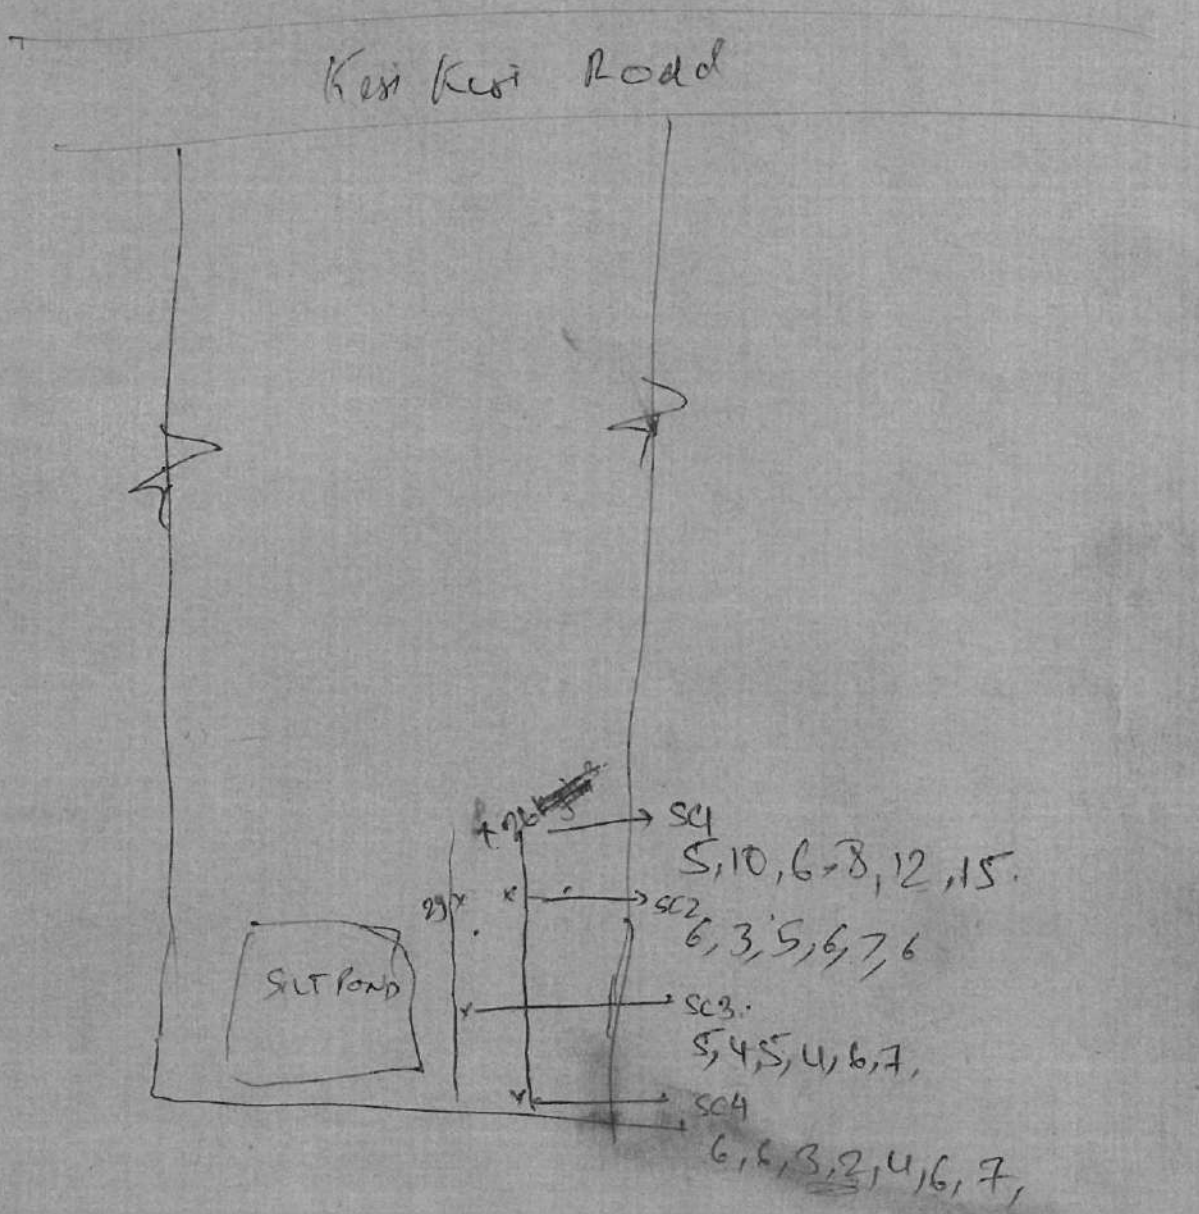 Kesi Kesi Road
26
SC1
5, 10, 6, 8, 12, 15.
29
SC2
6, 3, 5, 6, 7, 6
SILT POND
SC3.
5, 4, 5, 4, 6, 7,
SC4
6, 6, 3, 2, 4, 6, 7,